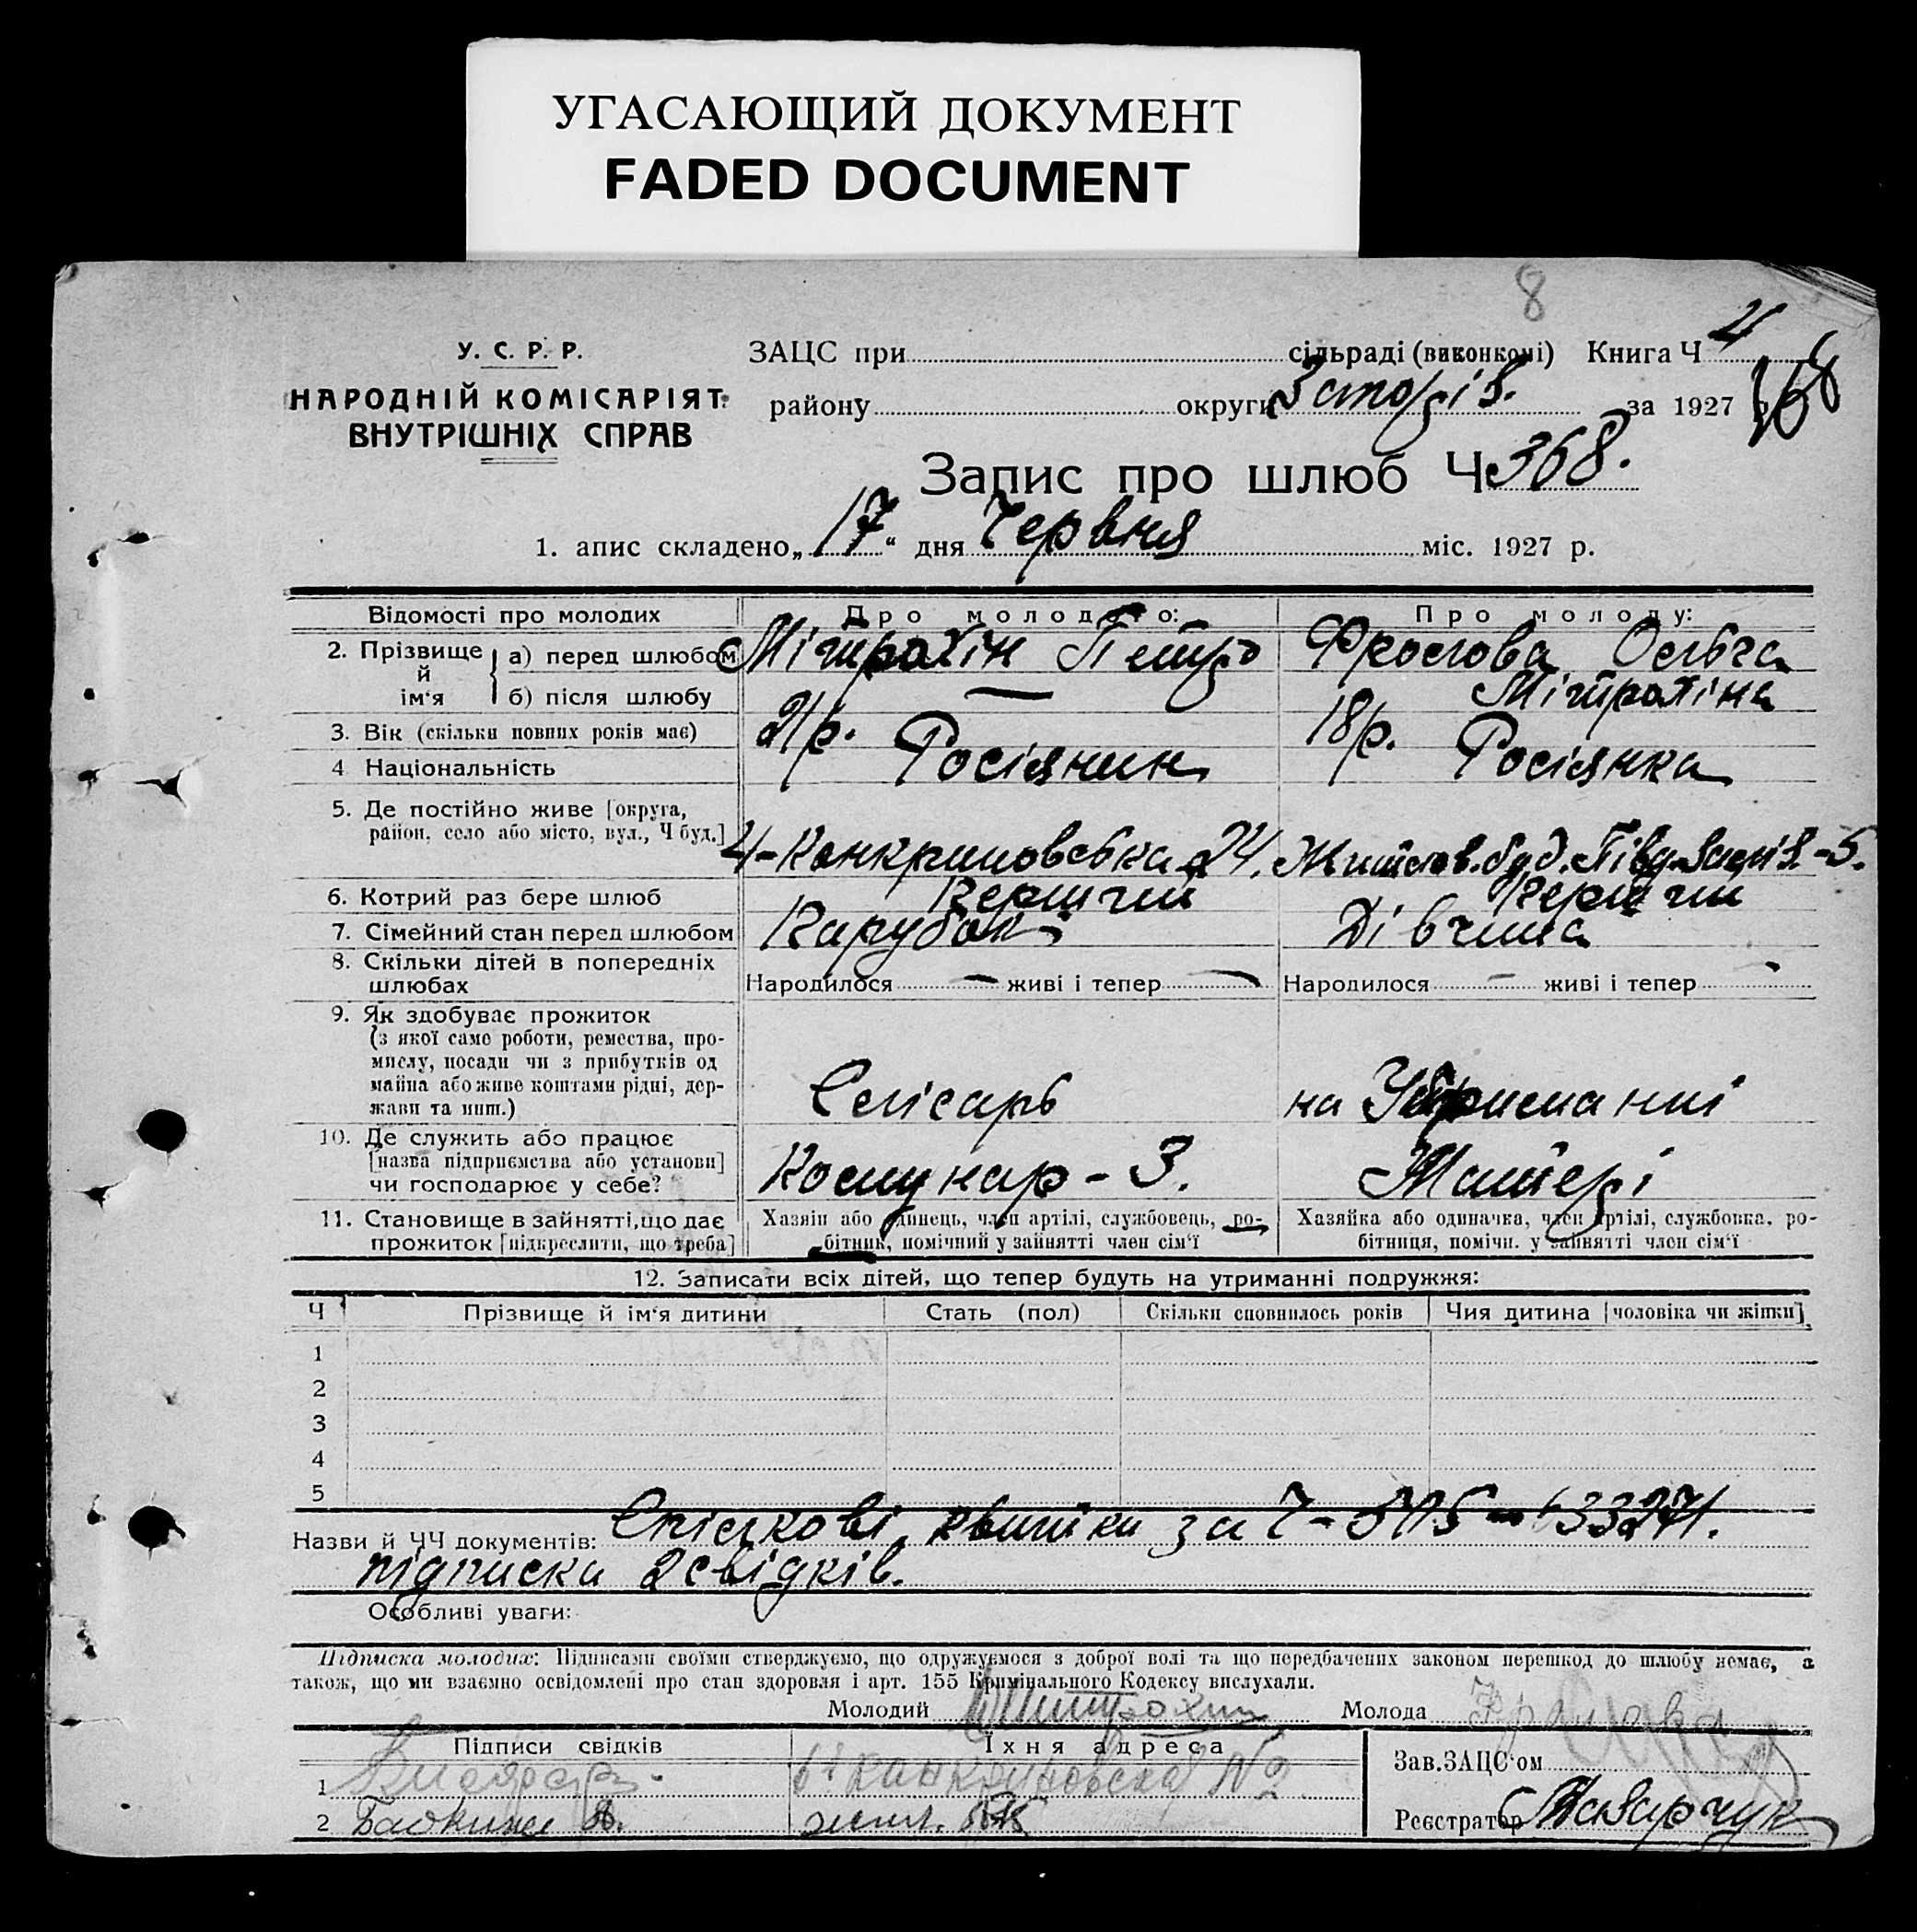 УГАСАЮЩИЙ ДОКУМЕНТ
FADED DOCUMENT
8
У. С. Р. Р.
НАРОДНІЙ КОМІСАРІЯТ
ВНУТРІШНІХ СПРАВ
ЗАЦС при сільраді (виконкомі) Книга Ч 4
району округи Запоріз. за 1927 р. 168
Запис про шлюб Ч 368.
1. апис складено „17“ дня Червня міс. 1927 р.
Відомості про молодих Про молодого: Про молоду:
2. Прізвище й ім‘я а) перед шлюбом Мітрохін Петро Фролова Ольга
б) після шлюбу — Мітрохіна
3. Вік (скільки повних років має) 21 р. 18 р.
4 Національність Росіянин Росіянка
5. Де постійно живе [округа,
район, село або місто, вул., Ч буд.] 4-Канкриновська 24. Житлов. буд. -5.
6. Котрий раз бере шлюб Перший Перший
7. Сімейний стан перед шлюбом Парубок Дівчина
8. Скільки дітей в попередніх
шлюбах Народилося — живі і тепер — Народилося — живі і тепер
9. Як здобуває прожиток
(з якої саме роботи, ремества, про-
мислу, посади чи з прибутків од
майна або живе коштами рідні, дер-
жави та инш.) Слісарь на Утриманні
10. Де служить або працює
[назва підприємства або установи]
чи господарює у себе? Комунар - 3. Матері
11. Становище в зайнятті, що дає
прожиток [підкреслити, що треба]
Хазяїн або одинець, член артілі, службовець, ро-
бітник, помічний у зайнятті член сім‘ї
Хазяйка або одиначка, член артілі, службовка, ро-
бітниця, помічн. у зайнятті член сім‘ї
12. Записати всіх дітей, що тепер будуть на утриманні подружжя:
Ч Прізвище й ім‘я дитини Стать (пол) Скільки сповнилось років Чия дитина [чоловіка чи жінки]
1
2
3
4
5
Назви й ЧЧ документів: Спілкові квитки за Ч-
підписка 2 свідків.
Особливі уваги:
Підписка молодих: Підписами своїми стверджуємо, що одружуємося з доброї волі та що передбачених законом перешкод до шлюбу немає, а
також, що ми взаємно освідомлені про стан здоровля і арт. 155 Кримінального Кодексу вислухали.
Молодий Митрохин Молода Фролова
Підписи свідків Їхня адреса
1 №2
2
Зав. ЗАЦС‘ом
Реєстратор